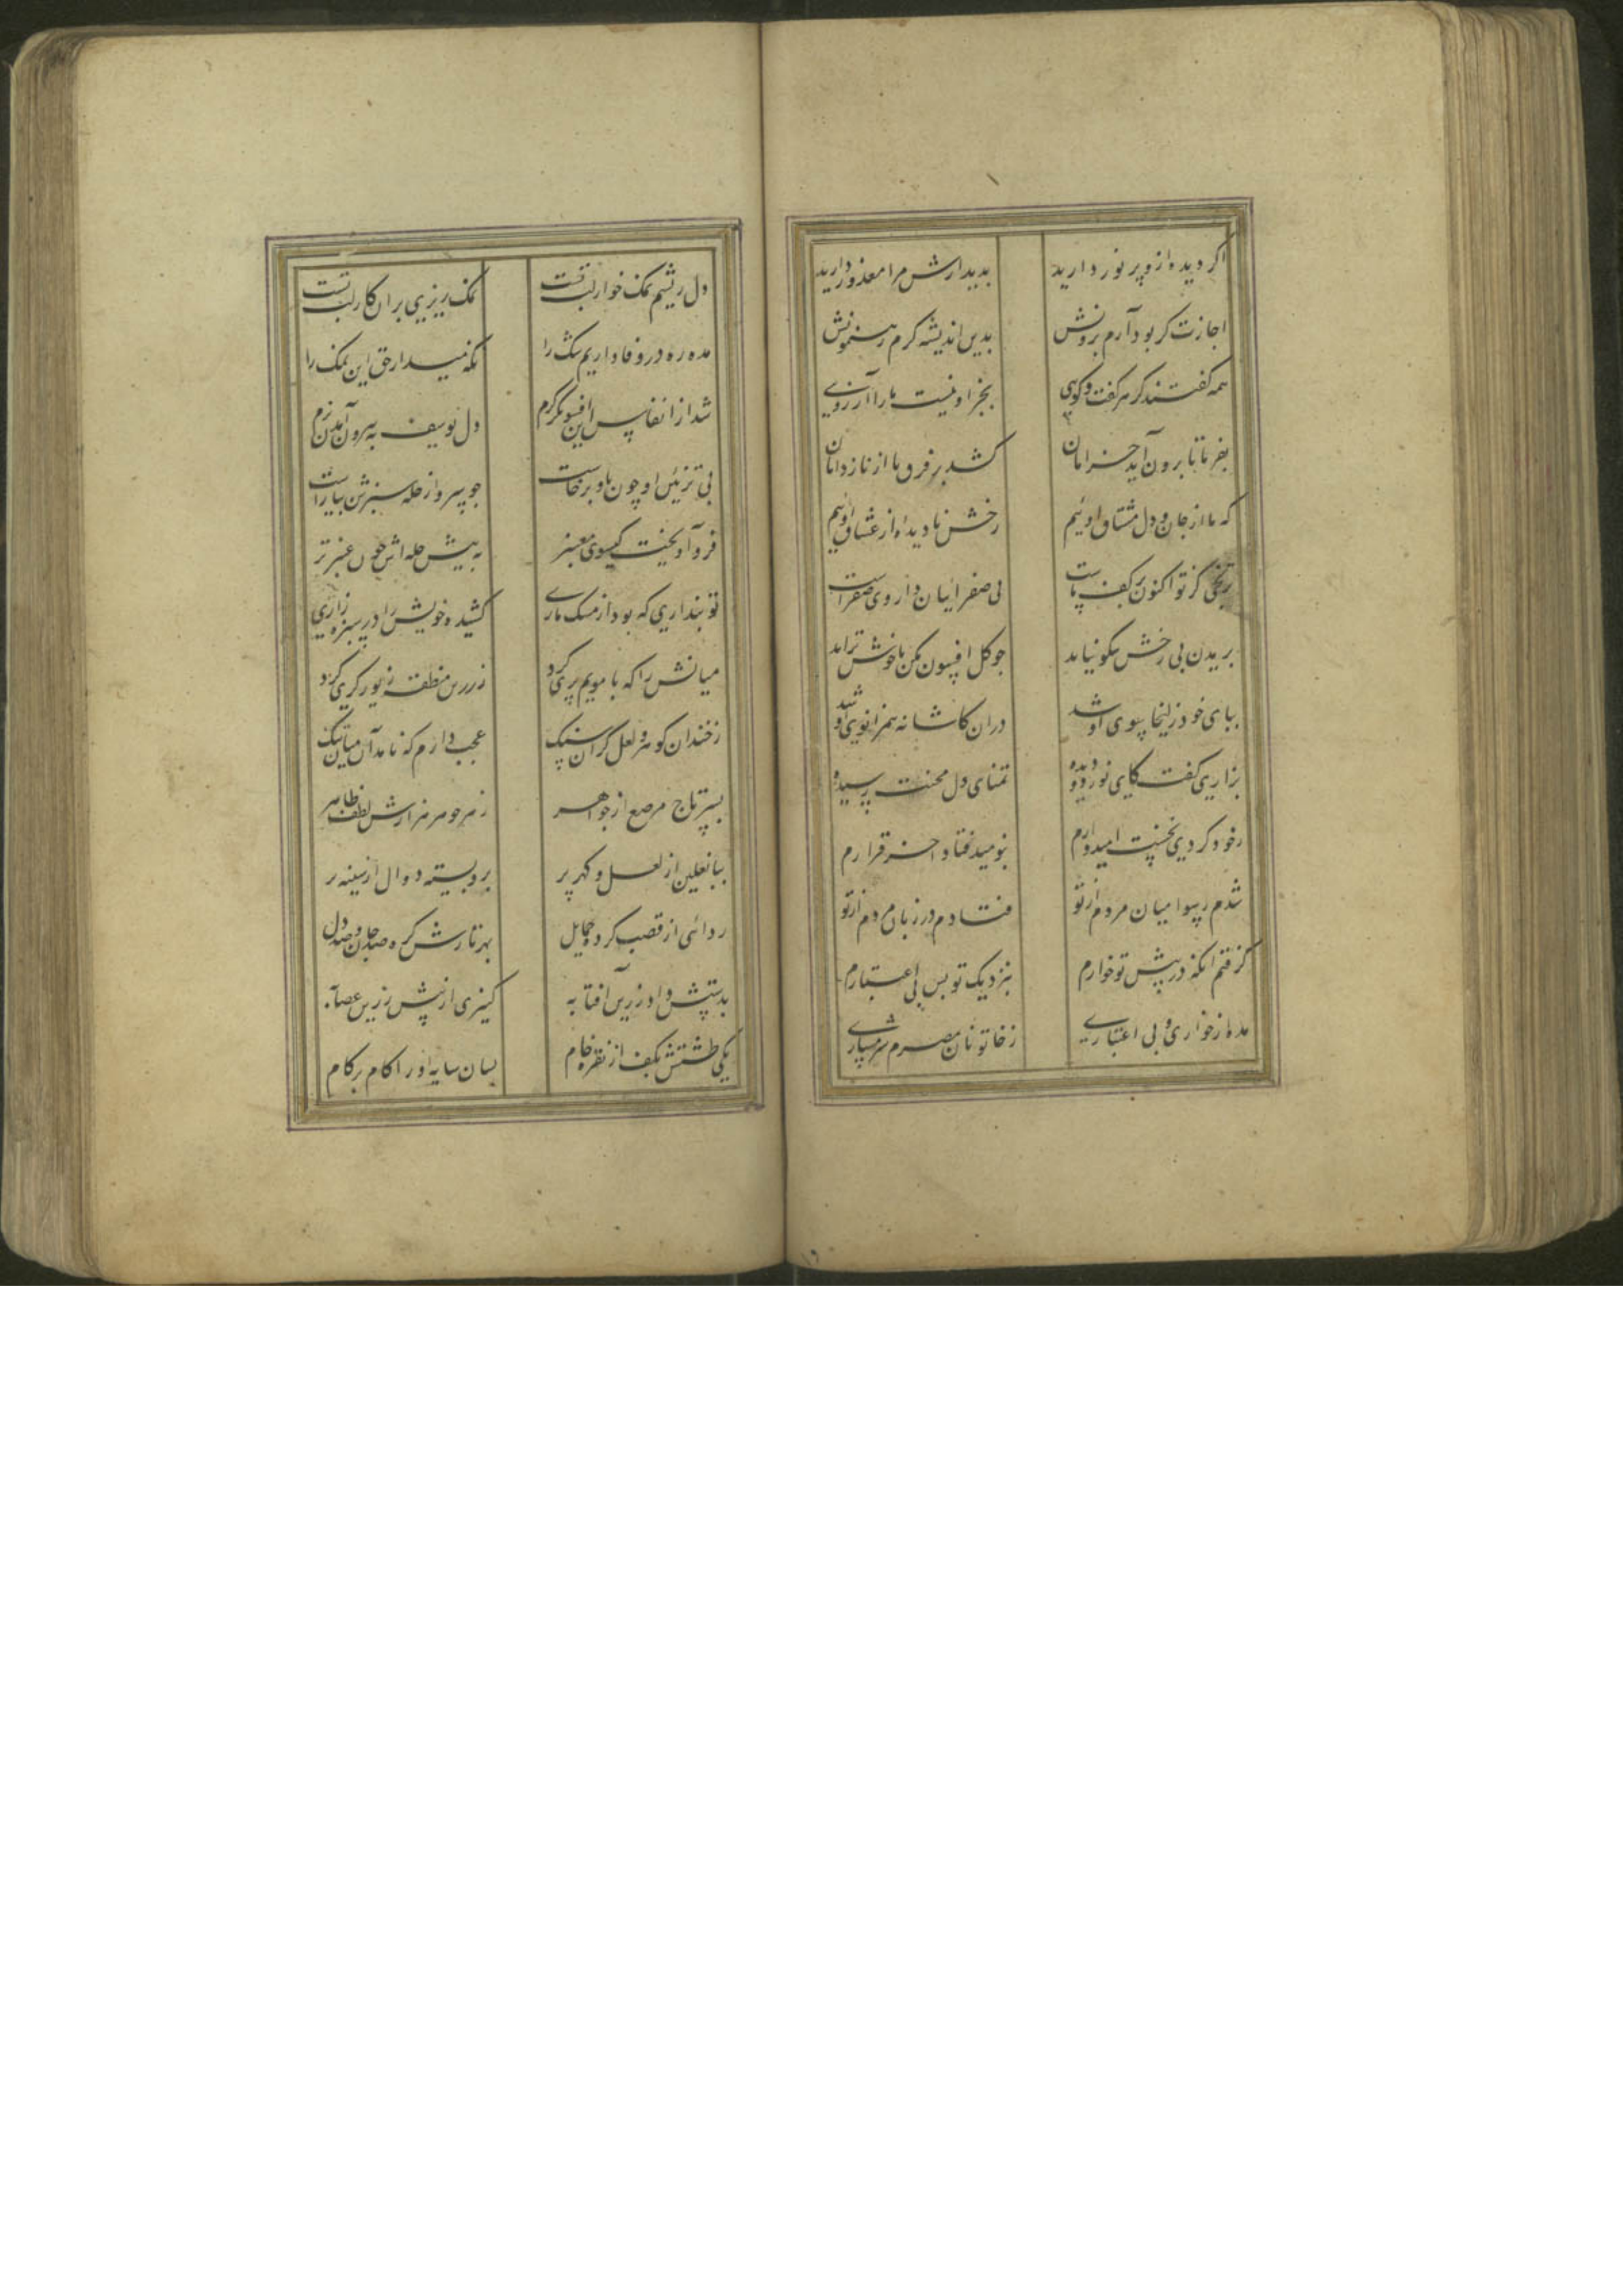 اکر دیده ازو پر نور دارید بدیدارش مرا معذور دارید
اجازت کر بود آرم برونش بدین اندیشه کردم رهنمونش
همه کفتند کز هر کفت و کوی بجز او نیست ما را آرزوی
بفرما تا برون آید خرامان کشد بر فرق ما از ناز دامان
که ما از جان و دل مشتاق اوئیم رخش نادیده از عشاق اوئیم
ترنجی کز تو اکنون بر کف ماست پی صفرائیان داروی صفراست
بریدن بی رخش نیکو نیاید
ببای خود زلیخا سوی او شد دران کاشانه همزانوی او شد
بزاری کفت کای نور دو دیده تمنای دل محنت رسیده
ز خود کردی نخست امیدوارم بنومیدی فتاد آخر قرارم
شدم رسوا میان مردم از تو فتادم در زبان مردم از تو
کرفتم آنکه در پیش تو خوارم بنزدیک تو بس بی اعتبارم
مده زخواری و بی اعتباری ز خاتونان مصرم شرمساری
دل ریشم نمک خوار لب تست نمک ریزی بر ان کار لب تست
مده ره در وفاداریم شک را نکه میدار حق این نمک را
شد از انفاس این افسونکر کرم دل یوسف به بیرون آمدن نرم
پی تزئین او چون باد برخاست جو سرو از حله سبزش بیاراست
فرو آویخت کیسوی معنبر به پیش حله اش چون عنبر تر
تو بنداری که بود از مسک ماری کشیده خویش را در سبزه زاری
میانش را که با مو همسری کرد ز زرین منطقه زیور کری کرد
ز چندان کوهر و لعل کران سنک عجب دارم که نامد آن میان تنک
بسر تاج مرصع از جواهر ز هر جوهر هزارش لطف ظاهر
ببا نعلین از لعل و کهر پر برو بسته دوال از
ردائی از قصب کرده حمایل بهر تارش کره صد جان و صد دل
بدستش داد زرین آفتابه کنیزی از پیش زرین عصابه
یکی طشتش بکف از نقره خام بسان سایه او را کام بر کام